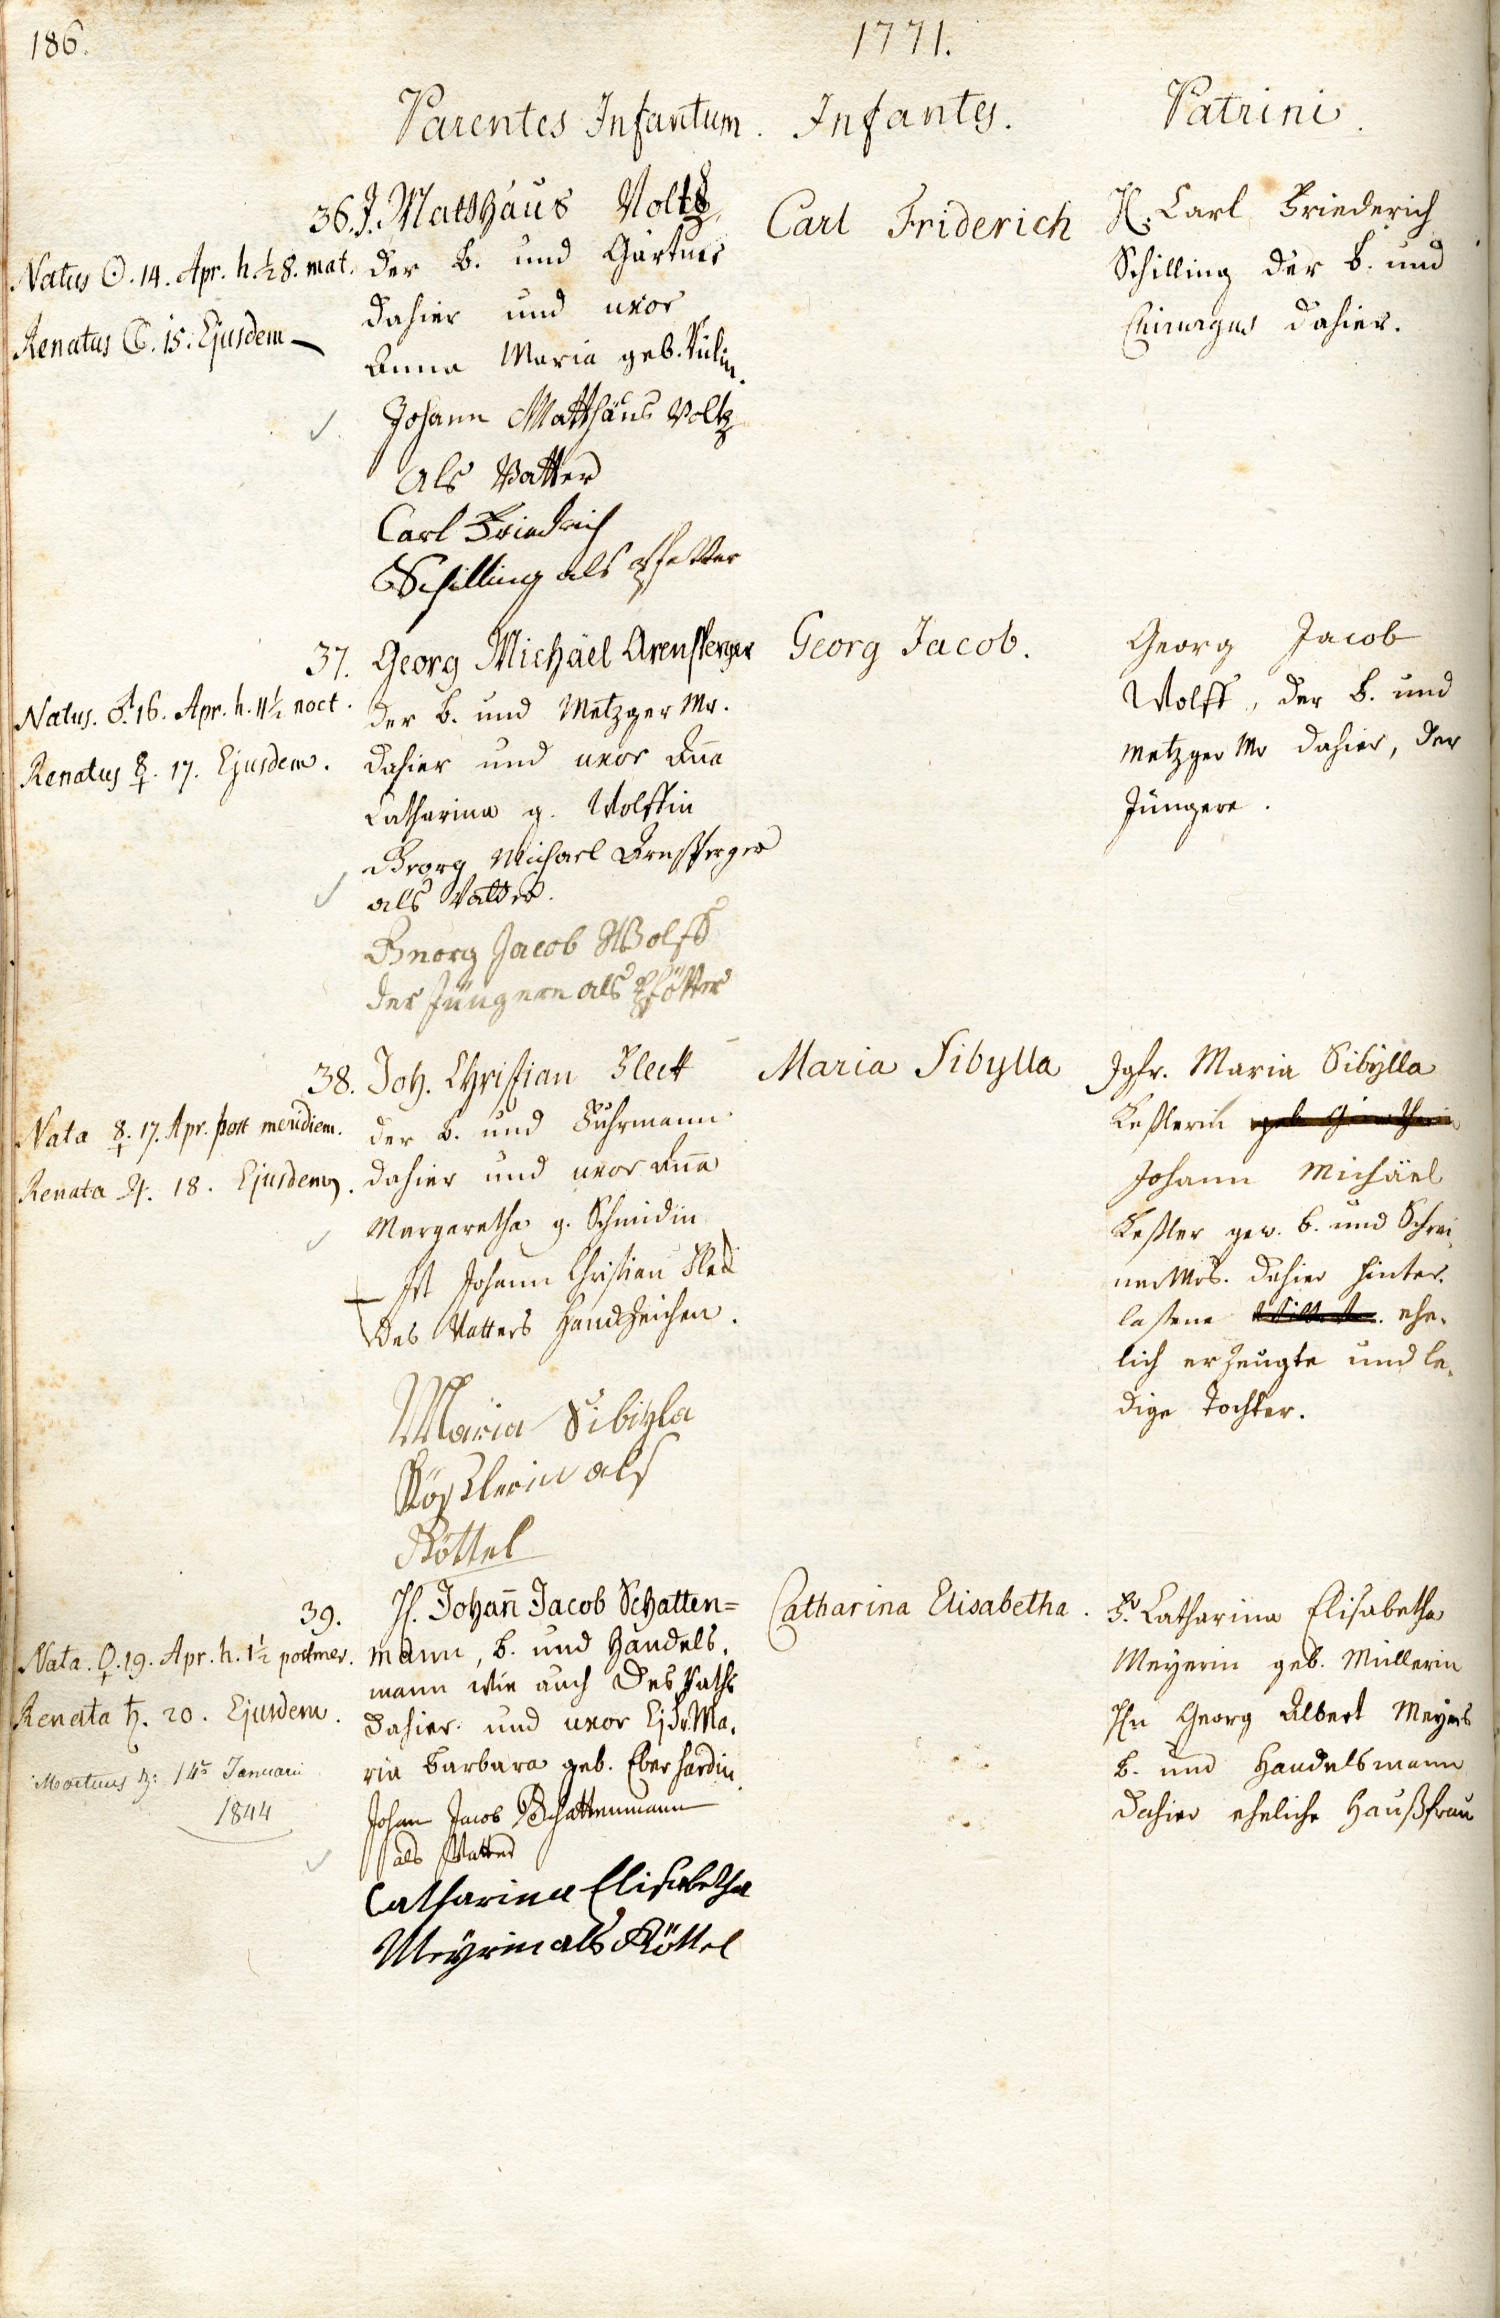 186.
1771.
Parentes Infantum. Infantes. Patrini.
36. J. Matthäus Voltz
der B. und Gärtner
dahier und uxor
Anna Maria geb.
Natus ☉. 14. Apr. h. ½ 8. mat.
Renatus ☾. 15. Ejusdem
Johann Matthäus Voltz
als Vatter
Carl Friedrich
Schilling als Pfetter
Carl Friderich
H. Carl Friederich
Schilling der B. und
Chirurgus dahier.
37. Georg Michäel Arensperger
der B. und Metzger Mr.
dahier und uxor Aña
Catharina g. Wolffin
Natus. ♂. 16. Apr. h. 11½ noct.
Renatus ☿. 17. Ejusdem.
Georg Michael Arnsperger
als Vatter.
Georg Jacob Wolff
der Jüngere als Pfötter
Georg Jacob.
Georg Jacob
Wolff, der B. und
Metzger Mr dahier, der
Jüngere.
38. Joh. Christian Fleck
der B. und Fuhrmann
dahier und uxor Aña
Margaretha g. Schmidin
Nata ☿. 17. Apr. post meridiem.
Renata ♃. 18. Ejusdem.
Ist Johann Christian Fleck
des Vatters Handzeichen.
Maria Sibijla
als
Göttel
Maria Sibylla
Jgfr. Maria Sibÿlla
Keßlerin
Johann Michäel
Keßler gew. B. und Schrei-
ner Mrs. dahier hinter-
laßene ehe-
lich erzeugte und le-
dige Tochter.
39. H. Johañ Jacob Schatten=
mann, B. und Handels-
mann wie auch des Raths
dahier und uxor Ejus Ma-
ria Barbara geb. Eberhardin
Nata. ♀. 19. Apr. h. 1½ post mer.
Renata ♄. 20. Ejusdem.
Mortuus ♄. 14 Januarii
1844
Johan Jacob Schattenmann
als Vatter
Catharina Elisabetha
Meÿrin als Göttel
Catharina Elisabetha.
Fr. Catharina Elisabetha
Meyerin geb. Müllerin
Hn Georg Albert Meyers
B. und Handelsmann
dahier eheliche Haußfrau